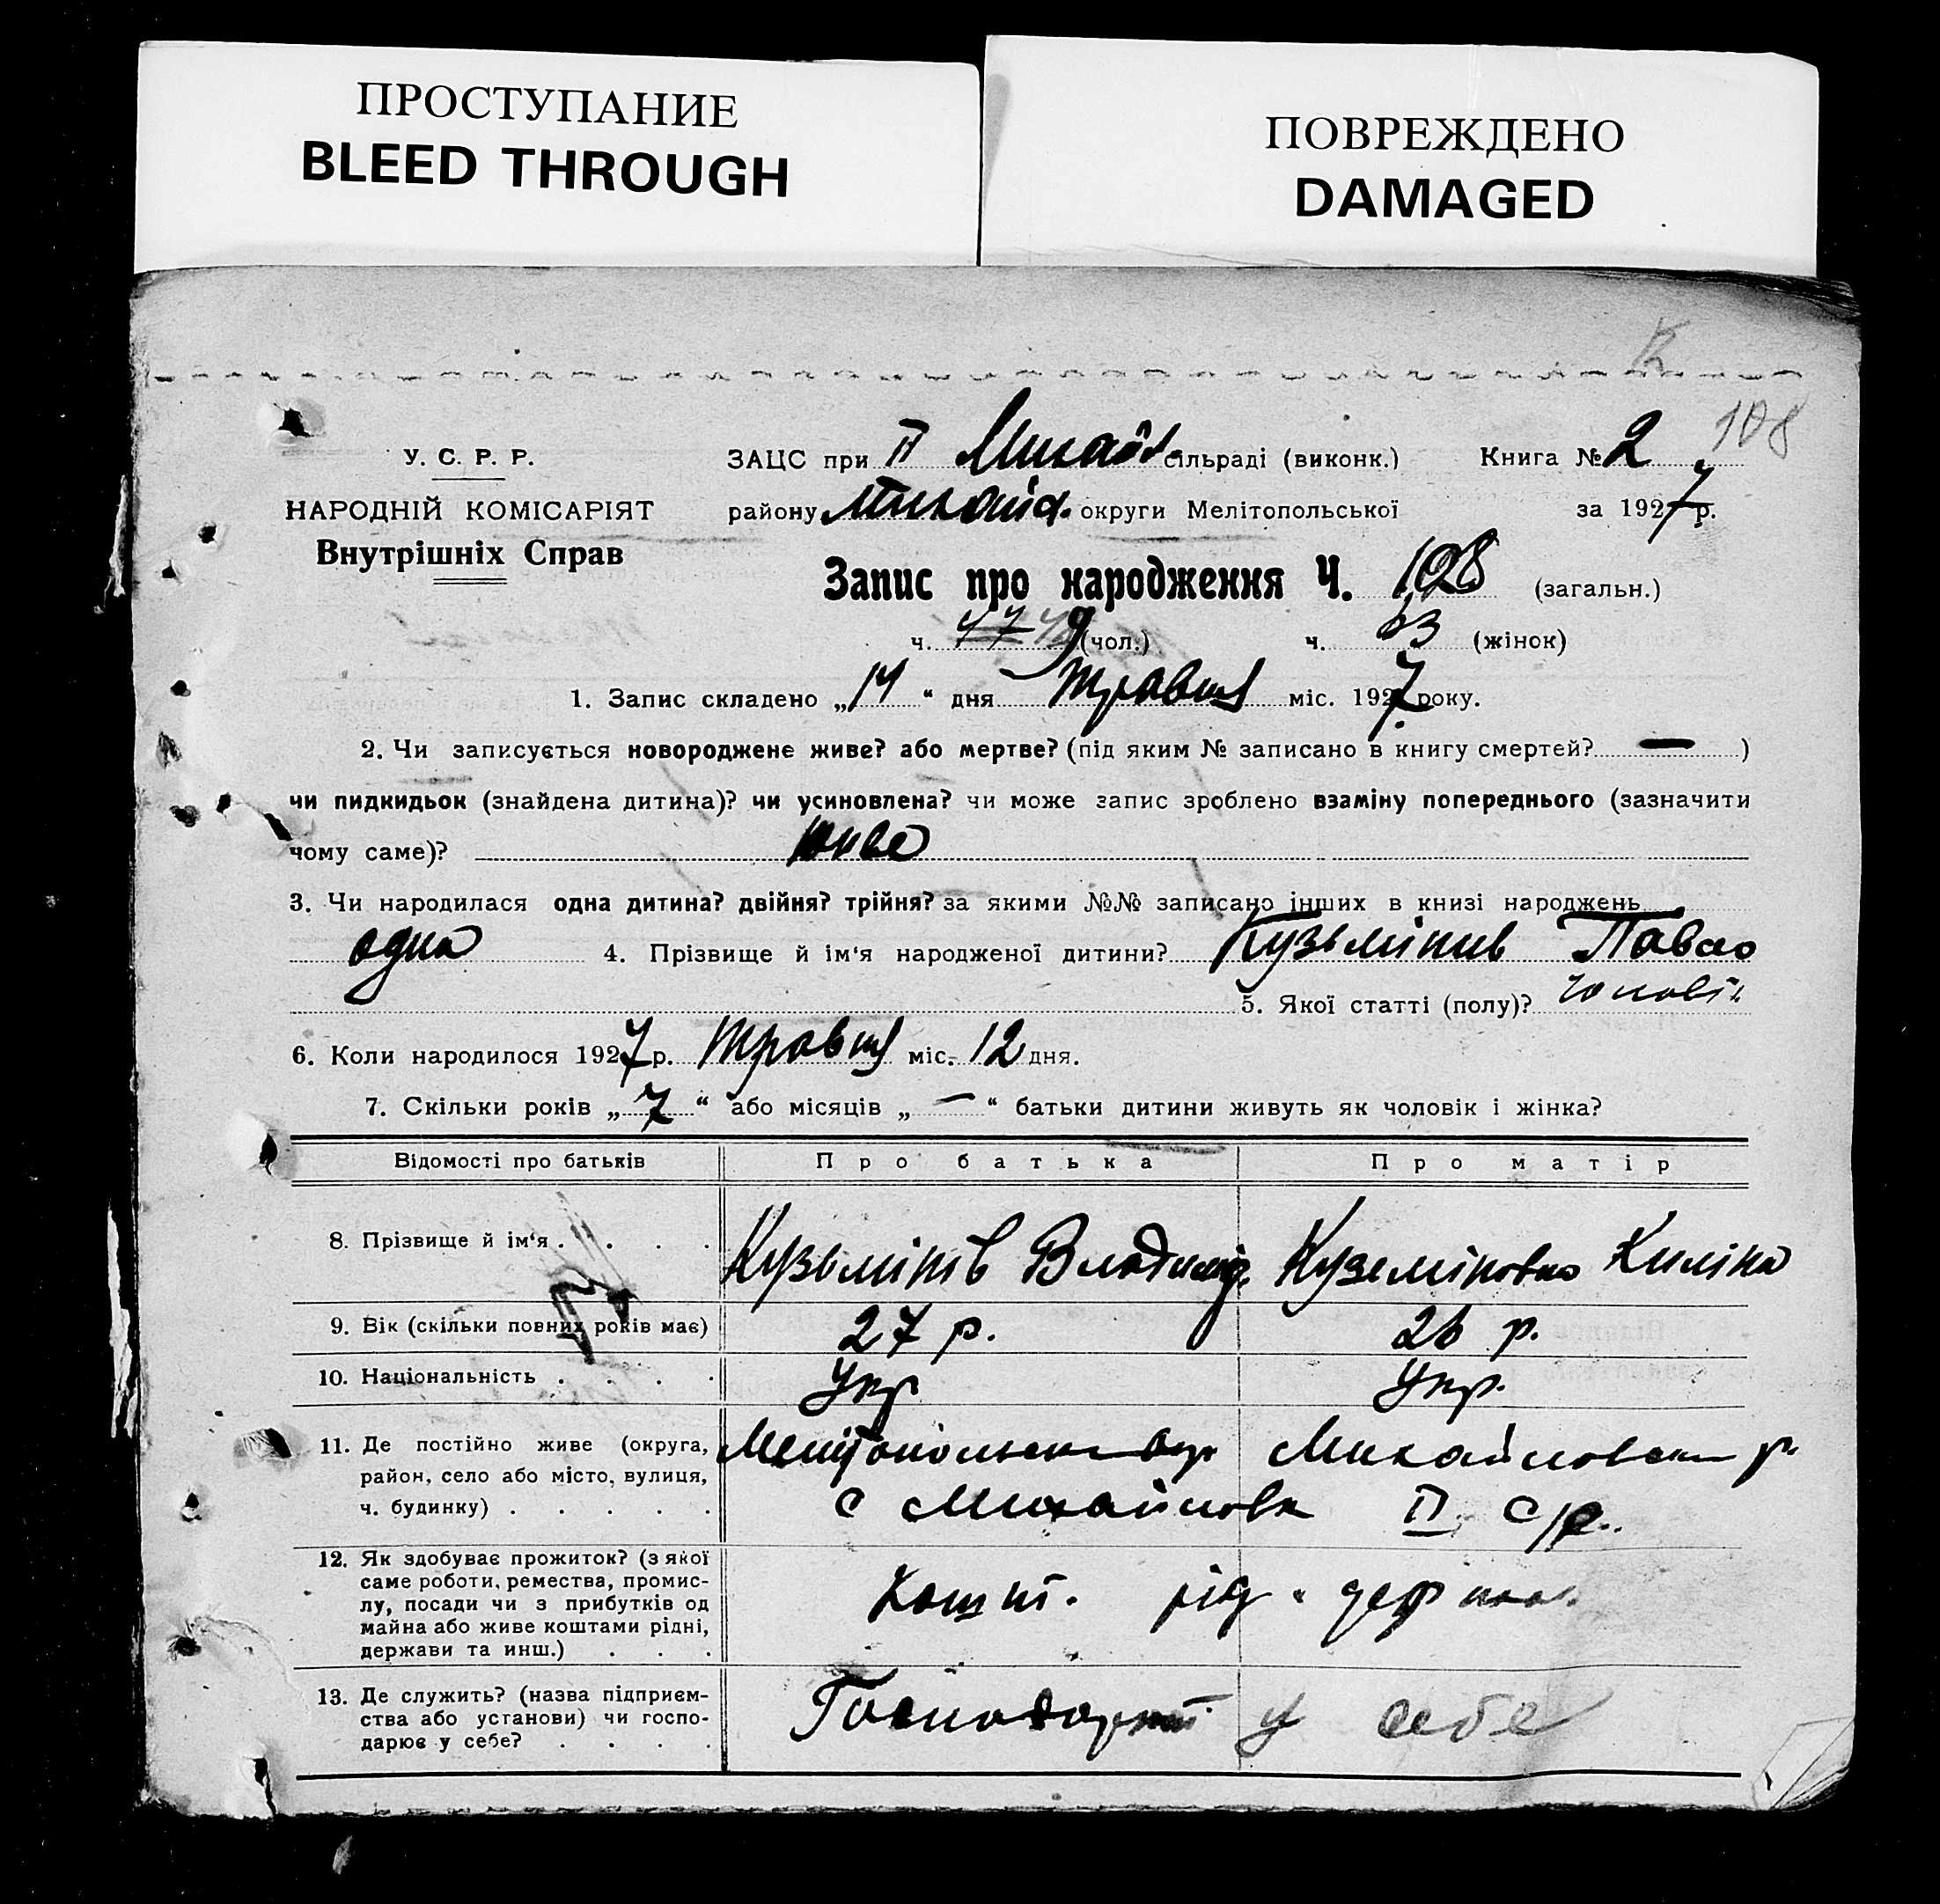 ПРОСТУПАНИЕ
BLEED THROUGH
ПОВРЕЖДЕНО
DAMAGED
108
У. С. Р. Р.
НАРОДНІЙ КОМІСАРІЯТ
Внутрішніх Справ
ЗАЦС при ІІ Михайл. сільраді (виконк.) Книга № 2
району Михайл. округи Мелітопольської за 1927 р.
Запис про народження Ч. 108 (загальн.)
ч. 47 49 (чол.) ч. (жінок)
1. Запис складено „14“ дня травня міс. 1927 року.
2. Чи записується новороджене живе? або мертве? (під яким № записано в книгу смертей? — )
чи пидкидьок (знайдена дитина)? чи усиновлена? чи може запис зроблено взаміну попереднього (зазначити
чому саме)? живе
3. Чи народилася одна дитина? двійня? трійня? за якими №№ записано інших в книзі народжень
одна 4. Прізвище й ім'я народженої дитини? Кузьмінив Павло
5. Якої статті (полу)? чоловік
6. Коли народилося 1927 р. травня міс. 12 дня.
7. Скільки років „7“ або місяців „—“ батьки дитини живуть як чоловік і жінка?
Відомості про батьків Про батька Про матір
8. Прізвище й ім'я . . . . . Кузьмінів Владимір Кузьмінова Килина
9. Вік (скільки повних років має) 27 р. 26 р.
10. Національність . . . . Укр Укр.
11. Де постійно живе (округа, район, село або місто, вулиця, ч. будинку) . . . . . Мелітопольськ окр Михайловськ р.
с Михайловка ІІ с/р.
12. Як здобуває прожиток? (з якої саме роботи, ремества, промислу, посади чи з прибутків од майна або живе коштами рідні, держави та инш.) . . . Кошт. рід
13. Де служить? (назва підприємства або установи) чи господарює у себе? . . . . Господарює у себе